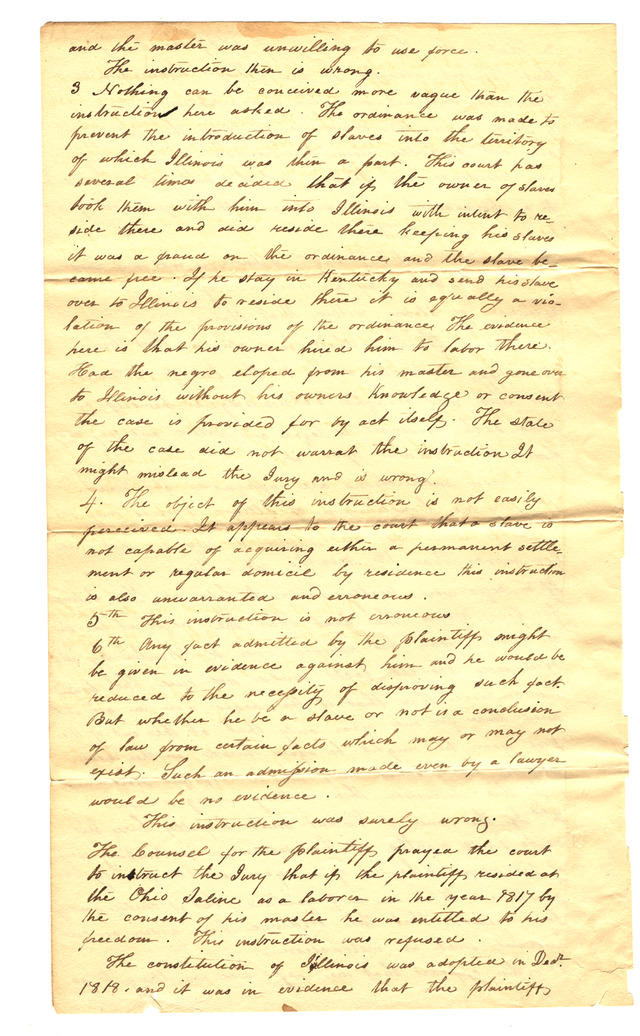 and the master was unwilling to use force.
The instruction then is wrong.
3 Nothing can be conceived more vague than the
instruction here asked. The ordinance was made to
prevent the introduction of slaves into the territory
of which Illinois was then a part. This court has
several times decided that if the owner of slaves
took them with him into Illinois with intent to re-
side there and did reside there keeping his slaves
it was a fraud on the ordinance and the slave be-
came free. If he stay in Kentucky and send his slave
over to Illinois to reside there it is equally a vio-
lation of the provisions of the ordinance. The evidence
here is that his owner hired him to labor there.
Had the negro eloped from his master and gone over
to Illinois without his owners Knowledge or consent
the case is provided for by act itself. The state
of the case did not warrat the instruction It
might mislead the Jury and is wrong.
4. The object of this instruction is not easily
perceived. It appears to the court that a slave is
not capable of acquiring either a permanent settle-
ment or regular domicil by residence this instruction
is also unwarranted and erroneous.
5th This instruction is not erroneous
6th Any fact admitted by the plaintiff might
be given in evidence against him and he would be
reduced to the necessity of disproving such fact.
But whether he be a slave or not is a conclusion
of law from certain facts which may or may not
exist. Such an admission made even by a lawyer
would be no evidence.
This instruction was surely wrong.
The Counsel for the plaintiff prayed the court
to instruct the Jury that if the plaintiff resided at
the Ohio Saline as a laborer in the year 1817 by
the consent of his master he was entitled to his
freedom. This instruction was refused.
The constitution of Illinois was adopted in Decr
1818. and it was in evidence that the plaintiff